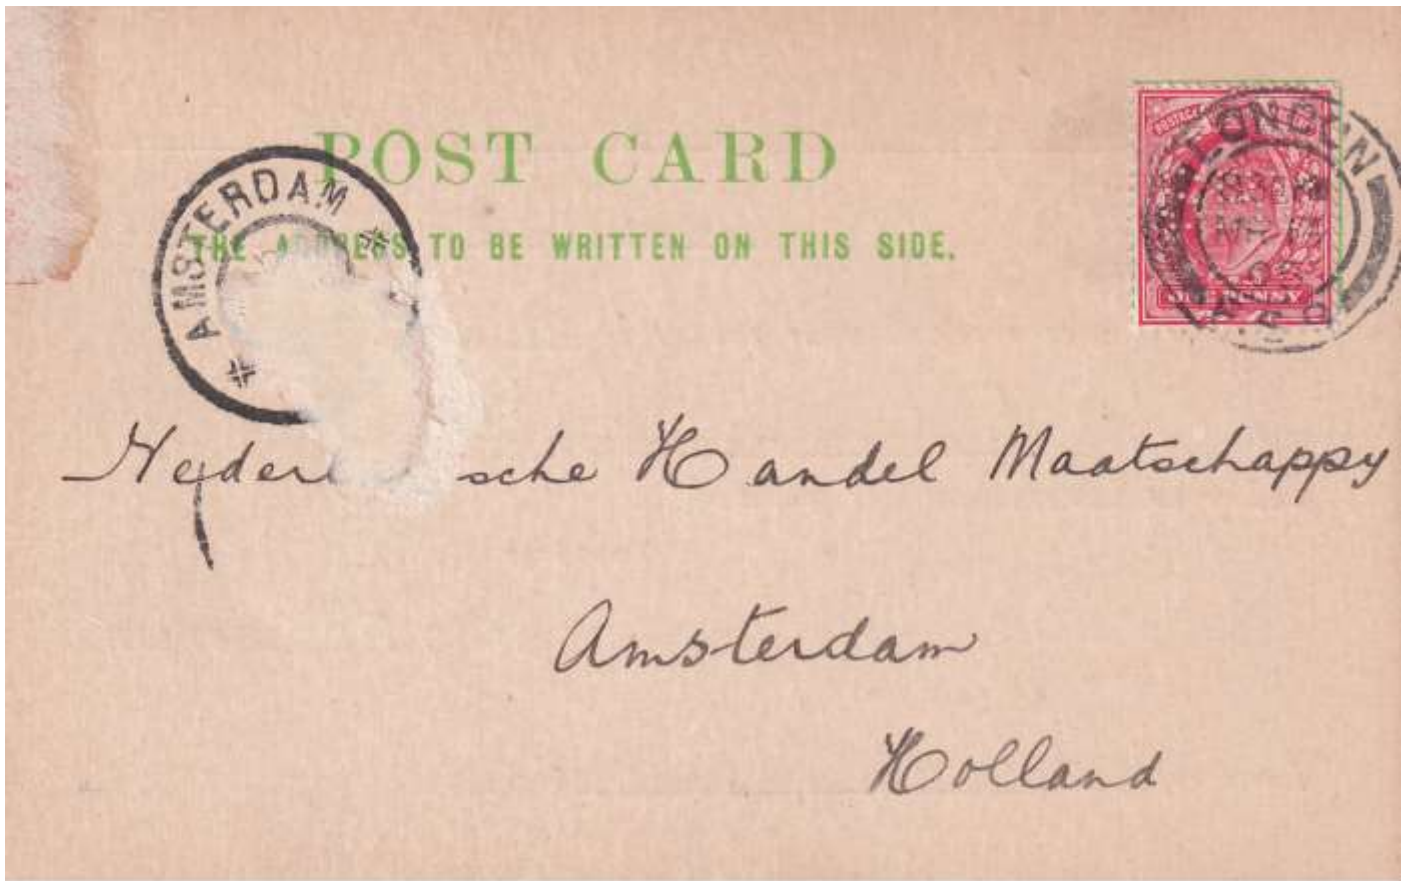 POST CARD
THE ADDRESS TO BE WRITTEN ON THIS SIDE.
AMSTERDAM
LONDON
ONE PENNY
Neder sche Handel Maatschappy
Amsterdam
Holland